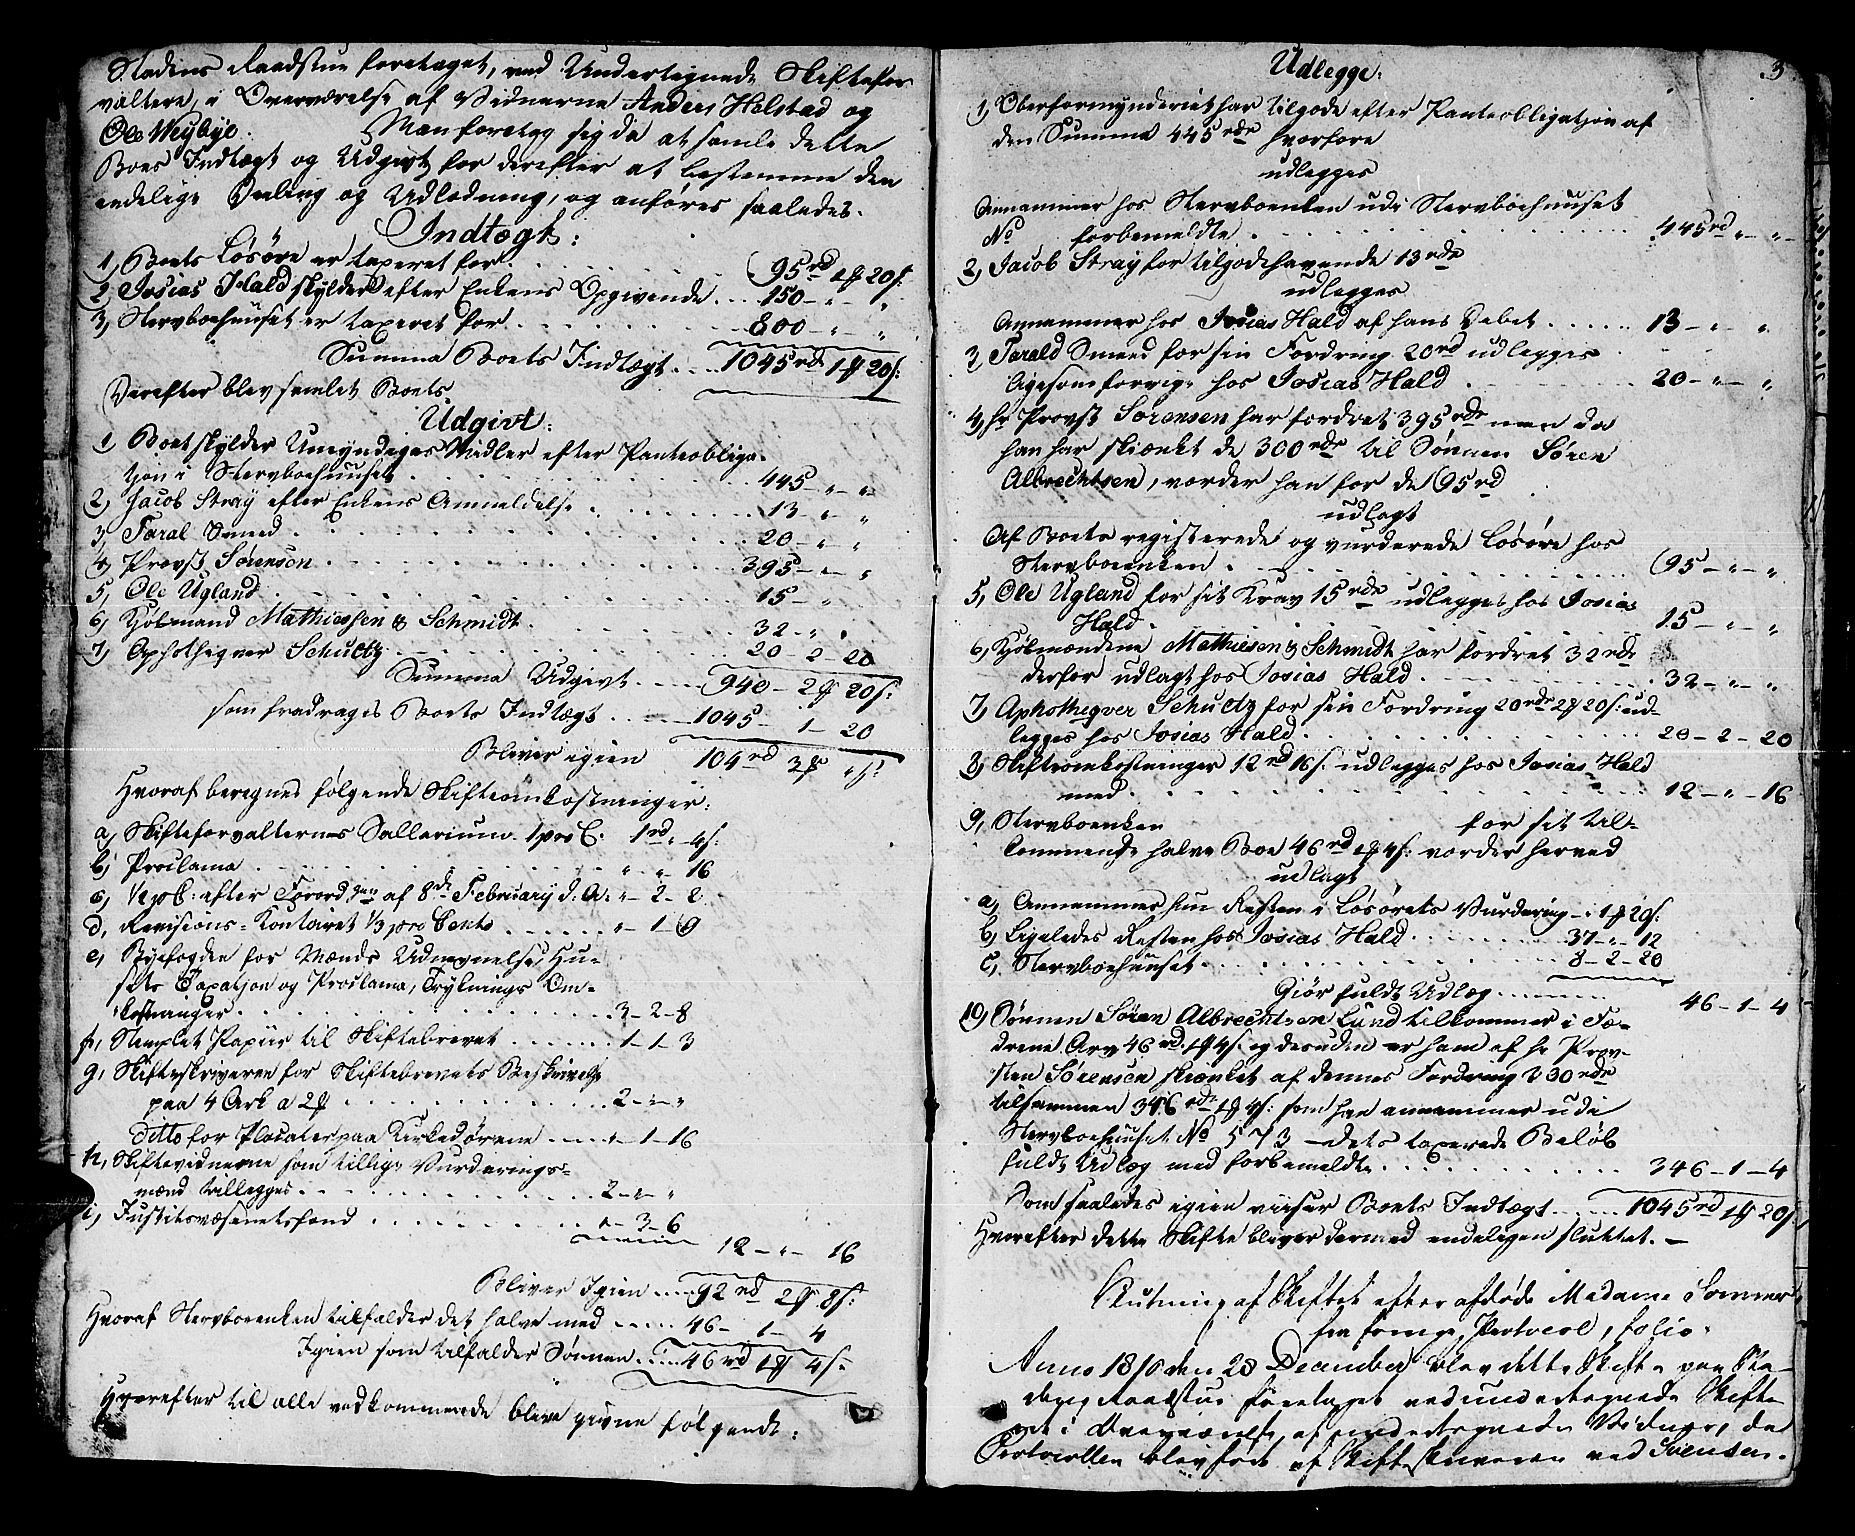 Stadens Raadstue foretaget, ved Undertegnede Skiftefor
valtere, i Overværelse af Vidnerne Anders Holstad og
Ole Weybye. Man foretog sig da at samle dette
Boes Indtægt og Udgivt for derefter at bestemme den
endelige Deeling og Udlodning, og anføres saaledes.
Indtægt:
1, Boets Løsøre er taxeret for . . . (95 rd 1 ℔ 20 s:
2, Josias Hald skylder efter Enkens Opgivende . . . 150 - " - "
3, Stervboehuuset er taxeret for . . . 800 - " - "
Summa Boets Indtægt . . . 1045 rd 1 ℔ 20 s:
Derefter blev samlet Boets
Udgivt:
1, Boet skylder Umyndiges Midler efter Panteobliga-
tjon i Stervboehuuset . . . 445 - " - "
2, Jacob Stray efter Enkens Anmeldelse . . . 13 - " - "
3, Taral Smeed . . . 20 - " - "
4, Provst Sørensen . . . 395 - " - "
5, Ole Ugland . . . 15 - "
6, Kjøbmand Mathiessen & Schmidt . . . 32 - " - "
7, Aphothegver Schultz . . . 20 - 2 - 20
Summa Udgivt . . . (940 - 2 ℔ 20 s:
som fradrages Boets Indtægt . . . 1045 - 1 - 20
Bliver igien 104 rd 3 ℔ " s:
Hvoraf beregnes følgende Skifteomkostninger:
a, Skifteforvalternes Sallarium 1 pro C: 1 rd " 4 s:
b, Proclama . . . " - " - 16
c, ½ p C: efter Forordgen af 8de Februarij d: A: " - 2 - 2
d, Revisions-Kontoiret 1/3 pro Cento . . . " - 1 - (9
e, Byefogden for Mænds Udnevnelse, Hu-
sets Taxatjon og Proclama, Tryknings Om-
kostninger . . . 3 - 2 - 8
f, Stemplet Papiir til Skiftebrevet . . . 1 - 1 - 3
g, Skifteskriveren for Skiftebrevets Beskrivelse
paa 4 Ark a 2 ℔ . . . 2 - " - "
Ditto for Placater paa Kirkedørene . . . " - 1 - 16
h, Skiftevidnerne som tillige Vurderings-
mænd tillegges . . . 2 - " - "
i, Justitsvæsenetsfond . . . " - 3 - 6
12 - " - 16
Bliver Igien . . . 92 rd 2 ℔ 8 s:
Hvoraf Stervboenken tilfalder det halve med . . . 46 - 1 - 4
Igien som tilfalder Sønnen . . . 46 rd 1 ℔ 4 s:
Hvorefter til alle vedkommende blive givne følgende:
3
Udlegge:
1, Oberformynderiet har tilgode efter Panteobligatjon af
den Summa 445 rdr hvorfore
udlegges
Annammer hos Stervboenken udi Stervboehuuset
No forbemeldte . . . 445 rd " - " -
2, Jacob Stray for tilgodehavende 13 rdr
udlegges
Annammer hos Josias Hald af hans Debet . . . 13 - " - "
3, Tarald Smeed for sin Fordring 20 rd udlegges
ligesom forrige hos Josias Hald . . . 20 - " - "
4, hr Provst Sørensen har fordret 395 rdr men da
han har skiænket de 300 rdr til Sønnen Søren
Albrechtsen, vorder han for de (95 rd
udlagt
Af Boets registerede og vurderede Løsøre hos
Stervboenken . . . (95 - " - "
5, Ole Ugland for sit Krav 15 rdr udlegges hos Josias
Hald . . . 15 - " - "
6, Kjøbmændene Mathiesen & Schmidt har fordret 32 rdr
derfor udlagt hos Josias Hald . . . 32 - " - "
7, Aphothegver Schultz for sin Fordring 20 rdr 2 ℔ 20 s: ud-
legges hos Josias Hald . . . 20 - 2 - 20
8, Skifteomkostninger 12 rd 16 s. udlegges hos Josias Hald
med . . . 12 - " - 16
9, Stervboenken for sit til-
kommende halve Boe 46 rd 1 ℔ 4 s: vorder herved
udlagt
a, Annammer hun Resten i Løsørets Vurdering - " 1 ℔ 20 s:
b, Ligeledes Resten hos Josias Hald . . . 37 - " - 12
c, Stervboehuuset . . . 8 - 2 - 20
Giør fuldt Udlæg . . . 46 - 1 - 4
10, Sønnen Søren Albrechtsen Lund tilkommer i Fæ-
drene Arv 46 rd 1 ℔ 4 s: og desuden er ham af hr Prov-
sten Sørensen skiænket af dennes Fordring 300 rdr
tilsammen 346 rdr 1 ℔ 4 s: som han annammer udi
Stervboehuuset No 573 - dets taxerede Beløb
fuldt Udlæg med forbemeldte . . . 346 - 1 - 4
Som saaledes igien viiser Boets Indtægt . . . 1045 rd 1 ℔ 20 s:
Hvorefter dette Skifte bliver dermed endeligen sluttet. -
Slutning af Skiftet efter afdøde Madame Sommer
fra forrige Protocol, folio
Anno 1810 den 28 December blev dette Skifte paa Sta-
dens Raadstue foretaget ved undertegnede Skifte
ret i Overværelse af undertegnede Vidner, da
Protocollen blev ført af Skifteskriveren ved Svensen.